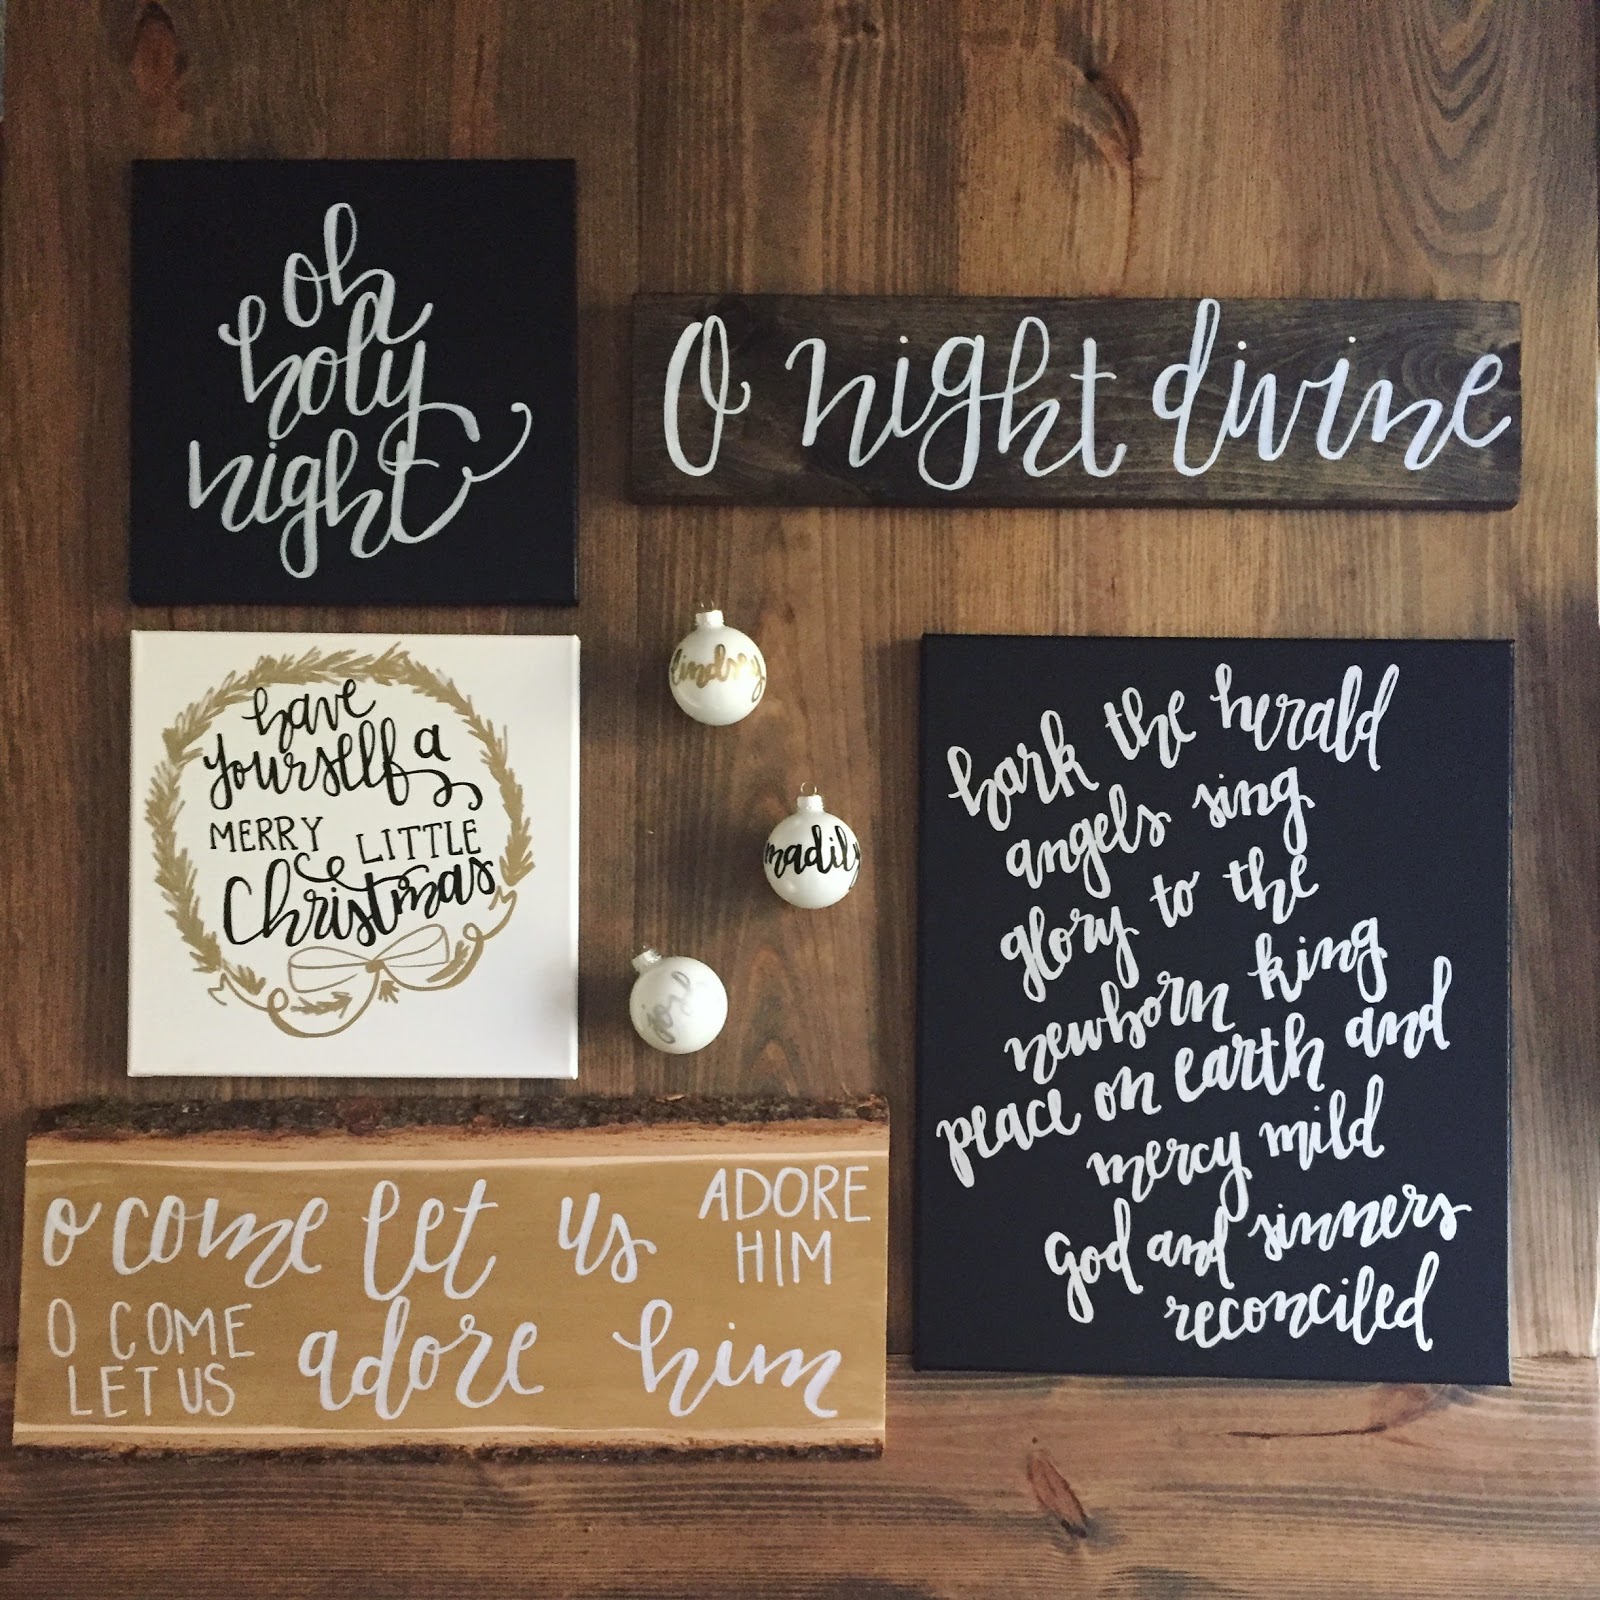 oh
holy
night
O night divine
have
yourself a
MERRY LITTLE
Christmas
lindsey
madily
joey
hark the herald
angels sing
glory to the
newborn king
peace on earth and
mercy mild
God and sinners
reconciled
o come let us ADORE HIM
O COME LET US adore him